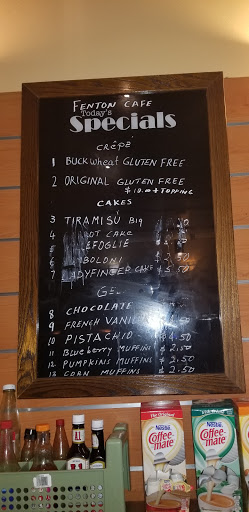 FENTON CAFE
Today's
Specials
CRÊPÉ
1 BUCKwheat GLUTEN FREE
2 ORIGINAL GLUTEN FREE
$10.00 + TOPPING
CAKES
3 TIRAMISÚ Big
4 CAKE
5
6
7 CAKE
GE
8 CHOCOLATE
9 FRENCH VANILL
10 PISTACHIO $4.50
11 Blueberry MUFFINS $2.50
12 PUMPKINS MUFFINS $2.50
13 CORN MUFFINS $2.50
The Original
Nestlé
Coffee-mate
Nestlé
Coffee-mate